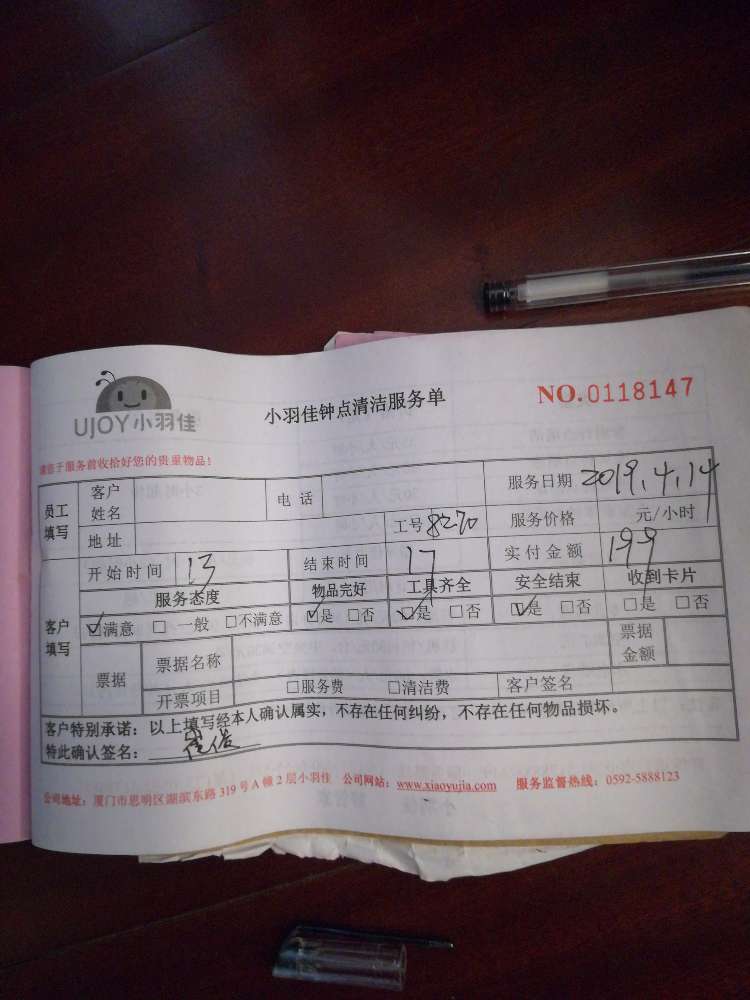 UJOY小羽佳
小羽佳钟点清洁服务单
NO.0118147
请您于服务前收拾好您的贵重物品!
员工填写 客户姓名 电话 服务日期 2019.4.14
地址 工号 8270 服务价格 元/小时
客户填写 开始时间 13 结束时间 17 实付金额 199
服务态度 物品完好 工具齐全 安全结束 收到卡片
☑满意 □一般 □不满意 ☑是 □否 ☑是 □否 ☑是 □否 □是 □否
票据 票据名称 票据金额
开票项目 □服务费 □清洁费 客户签名
客户特别承诺：以上填写经本人确认属实，不存在任何纠纷，不存在任何物品损坏。
特此确认签名：
公司地址：厦门市思明区湖滨东路 319 号 A 幢 2 层小羽佳 公司网站：www.xiaoyujia.com 服务监督热线：0592-5888123